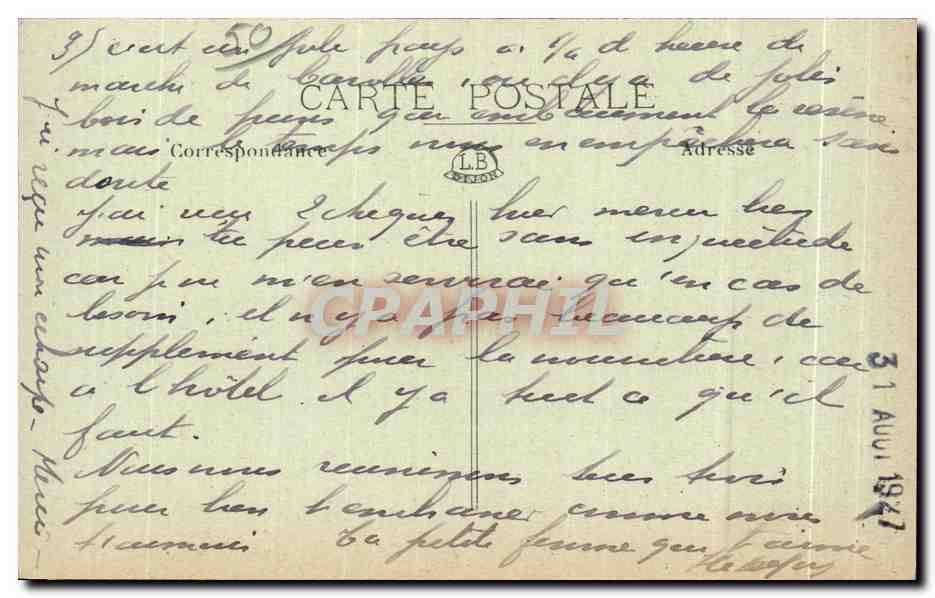 50
3) c'est un joli pays à 1/2 d heure de
marche de où il y a de jolis
bois de pins qui embaument la résine
mais le temps nous en empêchera sans
doute
CARTE POSTALE
Correspondance
Adresse
L.B
DIJON
J'ai reçu 2 chèques hier merci bien
tu peux être sans inquiétude
car je ne m'en servirai qu'en cas de
besoin, il n'y a pas beaucoup de
supplément pour la nourriture, car
à l'hôtel il y a tout ce qu'il
faut.
Nous nous réunissons tous trois
pour bien t'embrasser comme nous
t'aimons Ta petite femme qui t'aime
J'ai reçu mon écharpe - Merci -
31 AOUT 1927
CPAPHIL